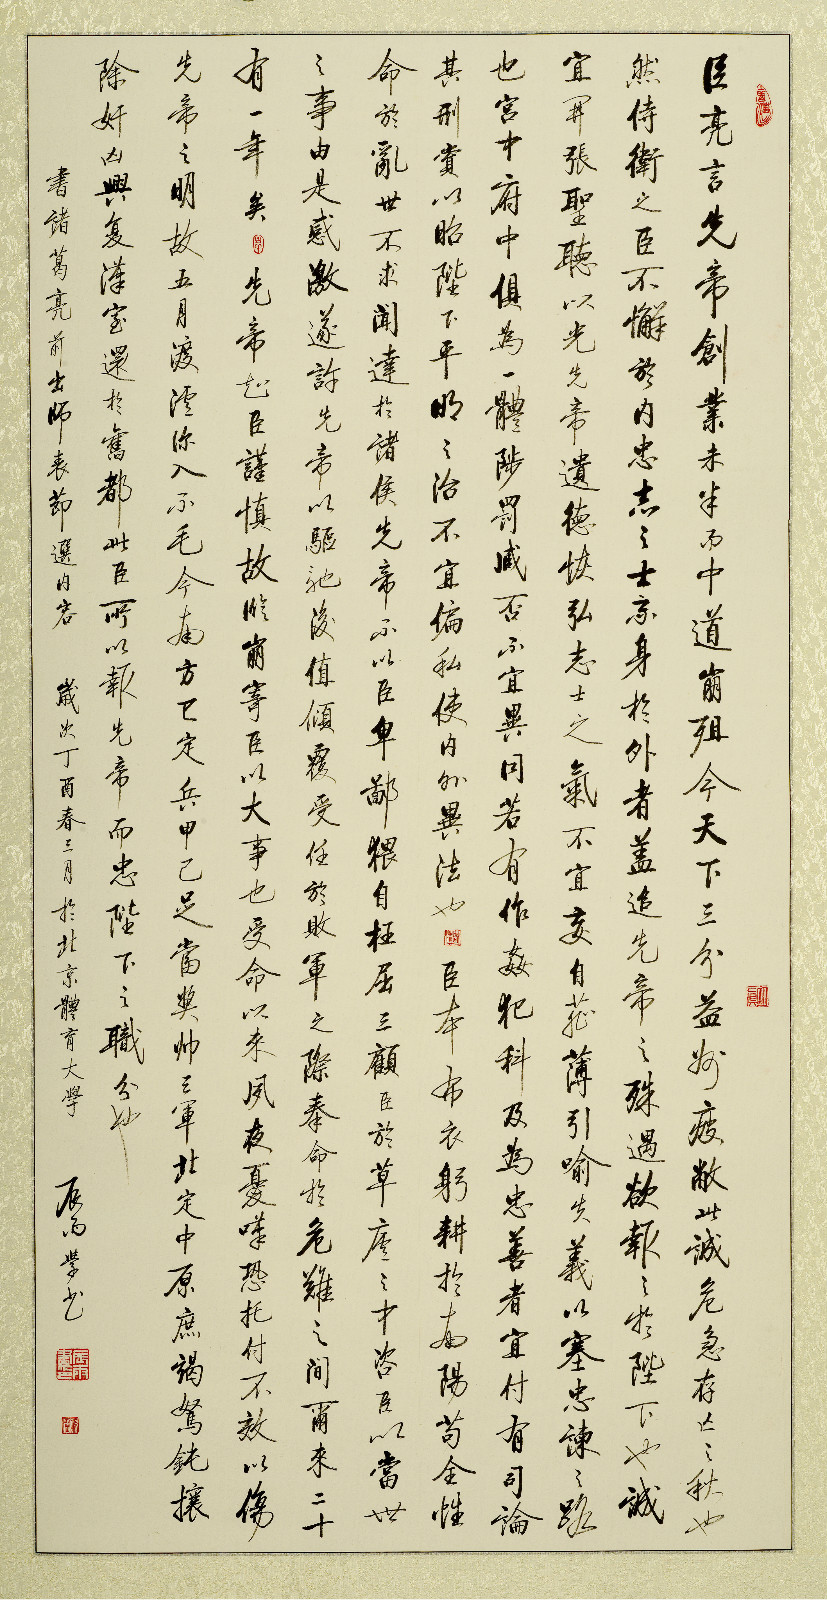 臣亮言先帝創業未半而中道崩殂今天下三分益州疲敝此誠危急存亡之秋也
然侍衛之臣不懈於內忠志之士忘身於外者蓋追先帝之殊遇欲報之於陛下也誠
宜開張聖聽以光先帝遺德恢弘志士之氣不宜妄自菲薄引喻失義以塞忠諫之路
也宮中府中俱為一體陟罰臧否不宜異同若有作姦犯科及為忠善者宜付有司論
其刑賞以昭陛下平明之治不宜偏私使內外異法也臣本布衣躬耕於南陽苟全性
命於亂世不求聞達於諸侯先帝不以臣卑鄙猥自枉屈三顧臣於草廬之中咨臣以當世
之事由是感激遂許先帝以驅馳後值傾覆受任於敗軍之際奉命於危難之間爾來二十
有一年矣先帝知臣謹慎故臨崩寄臣以大事也受命以來夙夜憂嘆恐托付不效以傷
先帝之明故五月渡瀘深入不毛今南方已定兵甲已足當獎帥三軍北定中原庶竭駑鈍攘
除奸凶興復漢室還於舊都此臣所以報先帝而忠陛下之職分也
書諸葛亮前出師表節選內容 歲次丁酉春三月於北京體育大學 辰雨學書